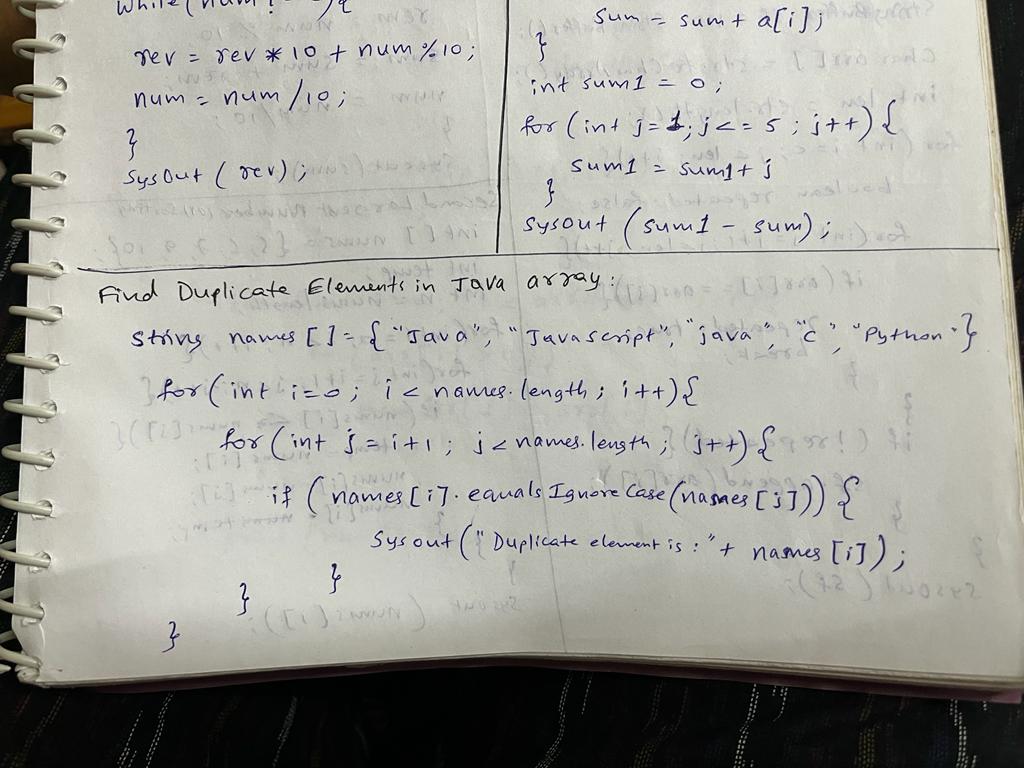 while(num !
rev = rev * 10 + num % 10;
num = num /10;
}
sysout ( rev);
sum = sum + a[i];
}
int sum1 = 0;
for (int j=1; j <= 5 ; j++) {
sum1 = sum1 + j
}
sysout (sum1 - sum);
Find Duplicate Elements in Java array:
String names [ ] = { "Java", "Javascript", "java", "c", "Python" }
for (int i=0; i < names.length; i++) {
for (int j = i+1 ; j < names.length ; j++) {
if (names [i]. equals Ignore Case (names [j])) {
Sysout ("Duplicate element is : " + names [i]);
}
}
}